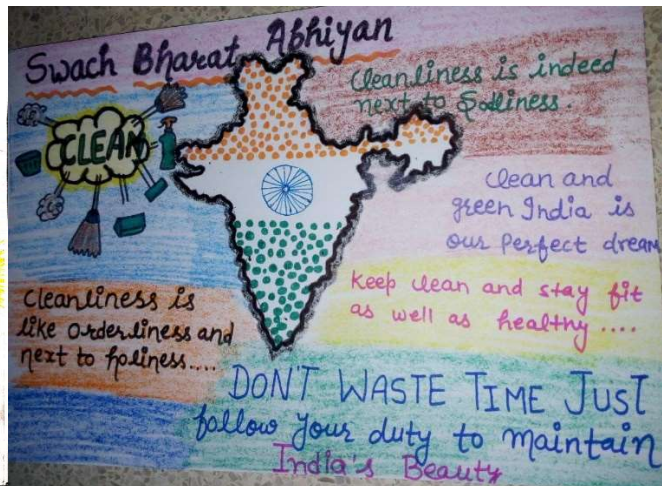 Swach Bharat Abhiyan
CLEAN
Cleanliness is indeed
next to Godliness.
Clean and
green India is
our Perfect dream
Keep clean and stay fit
as well as healthy....
Cleanliness is
like orderliness and
next to holiness....
DON'T WASTE TIME JUST
follow your duty to maintain
India's Beauty